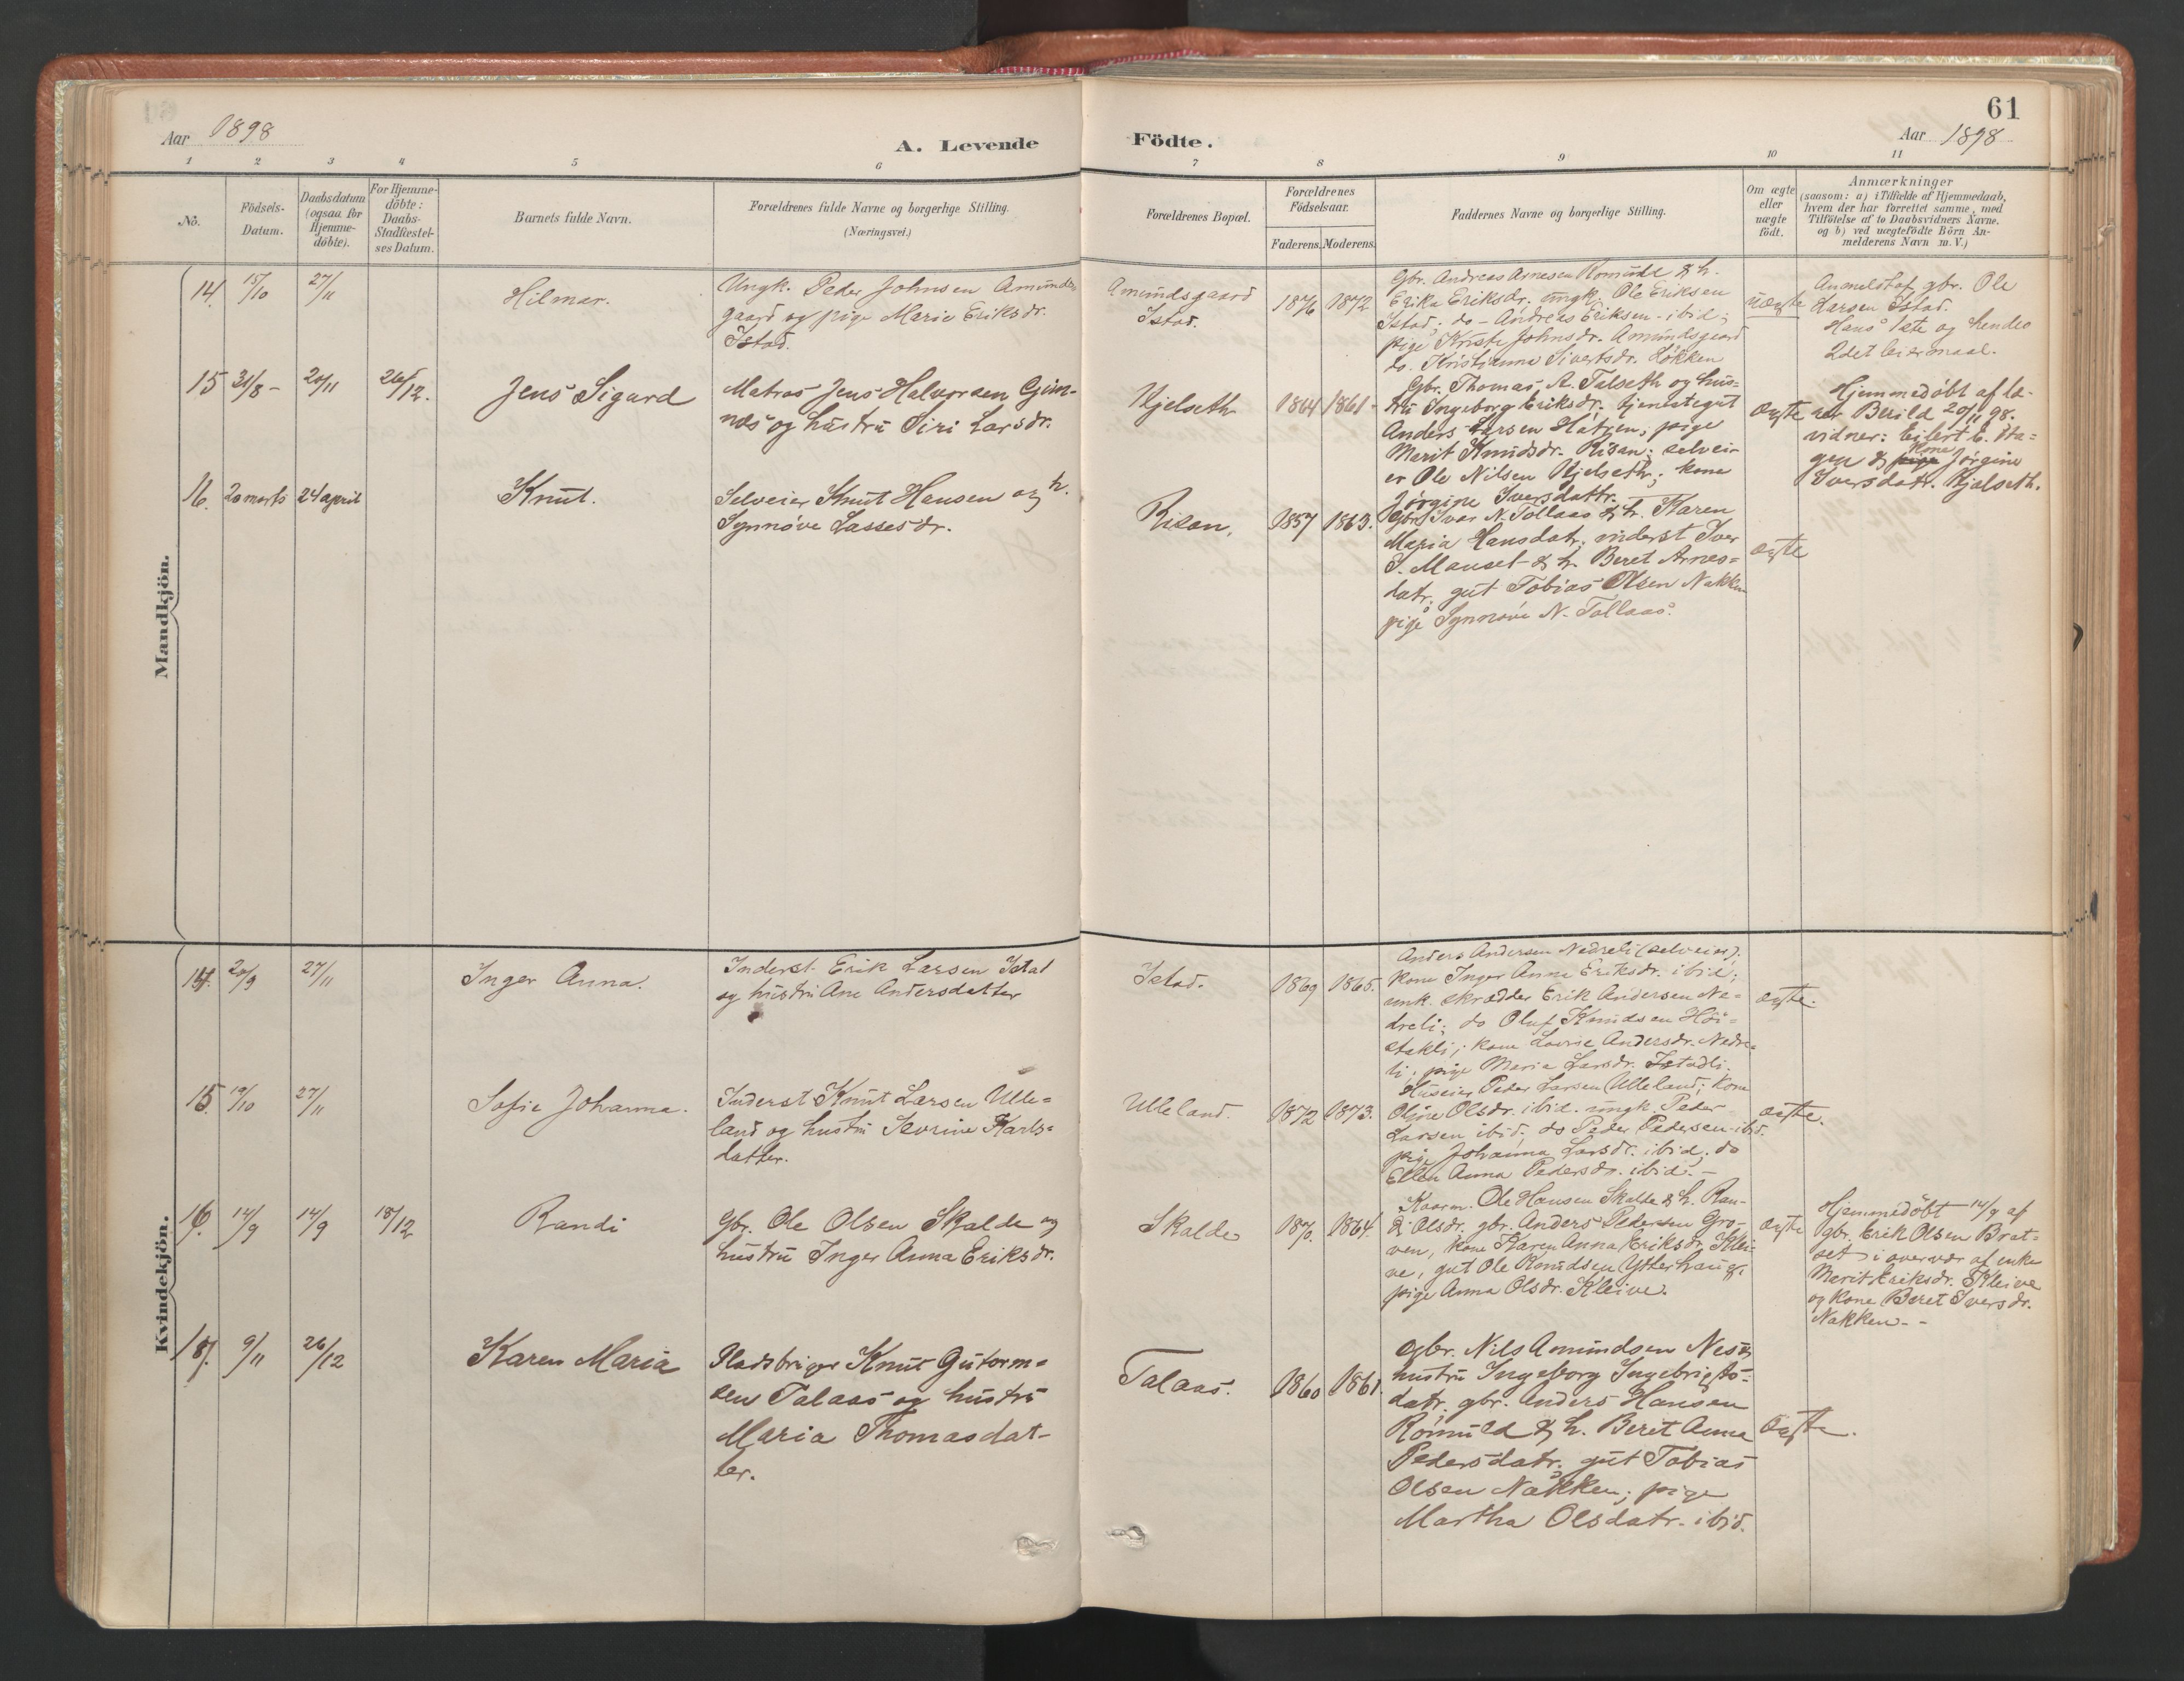 61
Aar 1898
A. Levende
Födte.
Aar 1898
1 2 3 4 5 6 7 8 9 10 11
No.
Födsels-
Datum.
Daabsdatum
(ogsaa for
Hjemme-
döbte).
For Hjemme-
döbte:
Daabs-
Stadfæstel-
ses Datum.
Barnets fulde Navn.
Forældrenes fulde Navne og borgerlige Stilling.
(Næringsvei.)
Forældrenes Bopæl.
Forældrenes
Födselsaar.
Faderens. Moderens.
Faddernes Navne og borgerlige Stilling.
Om ægte
eller
uægte
födt.
Anmærkninger
(saasom: a) i Tilfælde af Hjemmedaab,
hvem der har forrettet samme, med
Tilföielse af to Daabsvidners Navne,
og b) ved uægtefödte Börn An-
melderens Navn m. V.)
Mandkjön.
14. 15/10 27/11
Hilmar.
Ungk. Peder Johnsen Amunds
gaard og pige Marie Eriksdr.
Istad.
Amundsgaard
Istad.
1876 1872
Gbr. Andreas Arnesen Romuld & h.
Erika Eriksdr. ungk. Ole Eriksen
Istad; do - Andreas Eriksen - ibid;
pige Kristi Johnsdr. Amundsgaard
do. Kristianna Sivertsdr. Løkken
uægte
Anmeldt af gbr. Ole
Larsen Istad.
Hans 1ste og hendes
2det leiermaal.
15 31/8 - 20/11 26/12.
Jens Sigurd
Matros Jens Halvorsen Gjim-
næs og hustru Siri Larsdr.
Hjelseth
1864 1861 -
Gbr. Thomas A. Talseth og hus-
tru Ingeborg Eriksdr. tjenestegut
Anders Larsen Hatgen; pige
Marit Knudsdr. Risan; selvei-
er Ole Nilsen Hjelseth; kone
Jørgine Iversdattr.
ægte
Hjemmedøbt af læ-
rer Berild 20/11 98.
vidner: Eilert E. Ha-
gen & kone Jørgine
Iversdatr. Hjelseth.
16. 20 marts 24 april
Knut.
Selveier Knut Hansen og h.
Synnøve Lassesdr.
Risan,
1857 1863.
Gbr. Ivar N. Tollaas & h. Karen
Maria Hansdatr; inderst Iver
S. Manset & h. Beret Arnes-
datr. gut Tobias Olsen Nakken
pige Synnøve N. Tollaas.
ægte
Kvindekjön.
14. 20/9 27/11
Inger Anna.
Inderst Erik Larsen Istad
og hustru Ane Andersdatter
Istad.
1869 1865.
Anders Andersen Nedreli (selveier);
kone Inger Anna Eriksdr. ibid;
emk. skrædder Erik Andersen Ne-
dreli; do Oluf Knudsen Høi-
stakli; kone Lovise Andersdr. Nedre-
li; pige Maria Larsdr. Istadli.
ægte.
15. 19/10 27/11
Sofie Johanna.
Inderst Knut Larsen Ulle-
land og hustru Severine Karls-
datter.
Ulleland.
1872 1873.
Huseier Peder Larsen Ulleland; kone
Oline Olsdr. ibid. ungk. Peder
Larsen ibid; do Peder Pedersen ibid.
pige Johanna Larsdr. ibid; do
Ellen Anna Pedersdr. ibid. -
ægte.
16. 14/9 14/9 18/12
Randi
Gbr. Ole Olsen Skalde og
hustru Inger Anna Eriksdr.
Skalde
1870. 1864.
Kaarm. Ole Hansen Skalde & h. Ran-
di Olsdr. gbr. Anders Pedersen Gro-
ven, kone Karen Anna Eriksdr. Klei-
ve, gut Ole Knudsen Ytterhaug,
pige Anna Olsdr. Kleive.
ægte
Hjemmedøbt 14/9 af
gbr. Erik Olsen Brat-
set i overvær af enke
Marit Eriksdr. Kleive
og kone Beret Iversdr.
Nakken. -
18. 9/11 26/12
Karen Maria
Pladsbruger Knut Gutorm-
sen Talaas og hustru
Maria Thomasdat-
ter.
Talaas.
1860 1861.
Gbr. Nils Amundsen Nes &
hustru Ingeborg Ingebrigts-
datr. gbr. Anders Hansen
Romuld & h. Berit Anna
Pedersdatr. gut Tobias
Olsen Nakken; pige
Martha Olsdatr. ibid.
ægte.